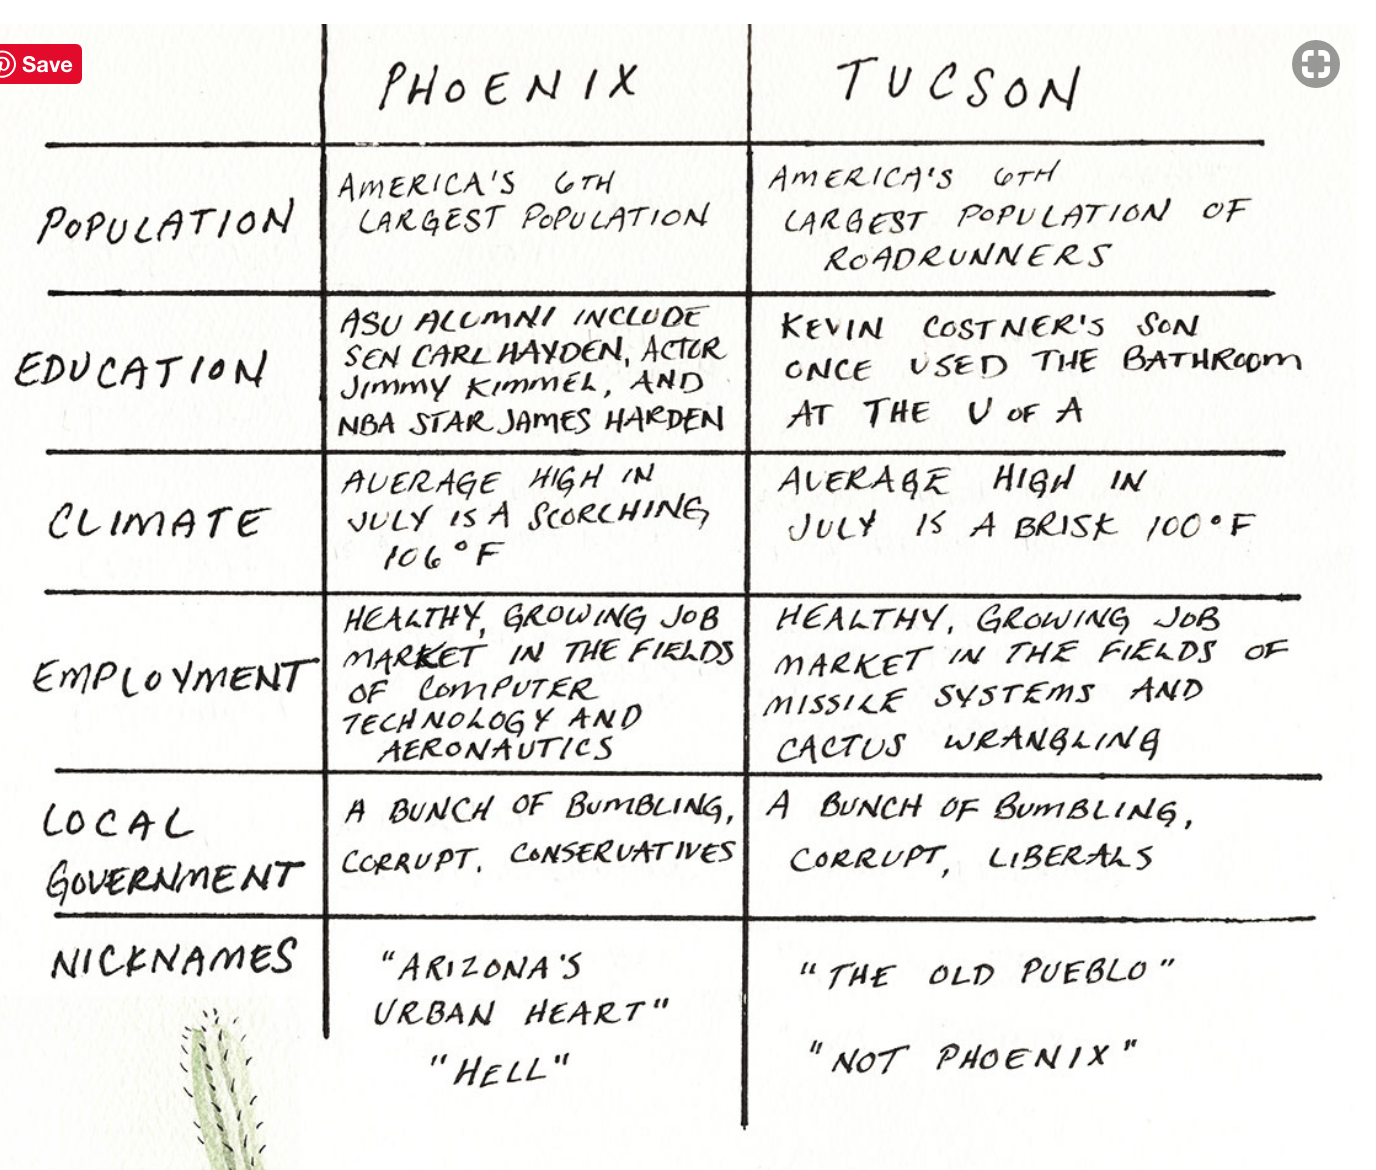 Save
PHOENIX
TUCSON
POPULATION
AMERICA'S 6TH
LARGEST POPULATION
AMERICA'S 6TH
LARGEST POPULATION OF
ROADRUNNERS
EDUCATION
ASU ALUMNI INCLUDE
SEN CARL HAYDEN, ACTOR
JIMMY KIMMEL, AND
NBA STAR JAMES HARDEN
KEVIN COSTNER'S SON
ONCE USED THE BATHROOM
AT THE U OF A
CLIMATE
AVERAGE HIGH IN
JULY IS A SCORCHING
106°F
AVERAGE HIGH IN
JULY IS A BRISK 100°F
EMPLOYMENT
HEALTHY, GROWING JOB
MARKET IN THE FIELDS
OF COMPUTER
TECHNOLOGY AND
AERONAUTICS
HEALTHY, GROWING JOB
MARKET IN THE FIELDS OF
MISSILE SYSTEMS AND
CACTUS WRANGLING
LOCAL
GOVERNMENT
A BUNCH OF BUMBLING,
CORRUPT, CONSERVATIVES
A BUNCH OF BUMBLING,
CORRUPT, LIBERALS
NICKNAMES
"ARIZONA'S
URBAN HEART"
"HELL"
"THE OLD PUEBLO"
"NOT PHOENIX"